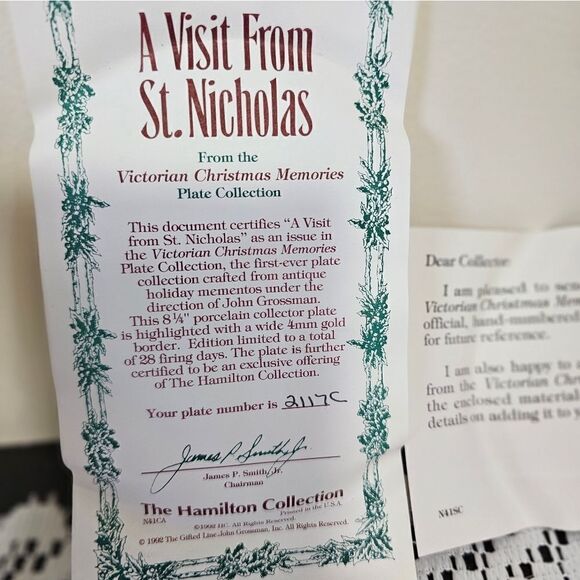 A Visit From
St. Nicholas
From the
Victorian Christmas Memories
Plate Collection
This document certifies “A Visit
from St. Nicholas” as an issue in
the Victorian Christmas Memories
Plate Collection, the first-ever plate
collection crafted from antique
holiday mementos under the
direction of John Grossman.
This 8¼" porcelain collector plate
is highlighted with a wide 4mm gold
border. Edition limited to a total
of 28 firing days. The plate is further
certified to be an exclusive offering
of The Hamilton Collection.
Your plate number is 2117C
James P. Smith, Jr.
James P. Smith, Jr.
Chairman
The Hamilton Collection
N41CA Printed in the U.S.A.
©1992 HC. All Rights Reserved.
© 1992 The Gifted Line-John Grossman, Inc. All Rights Reserved.
Dear Collector:
I am pleased to
Victorian Christmas
official, hand-numbered
for future reference.
I am also happy to
from the Victorian
the enclosed material
details on adding it to
N41SC